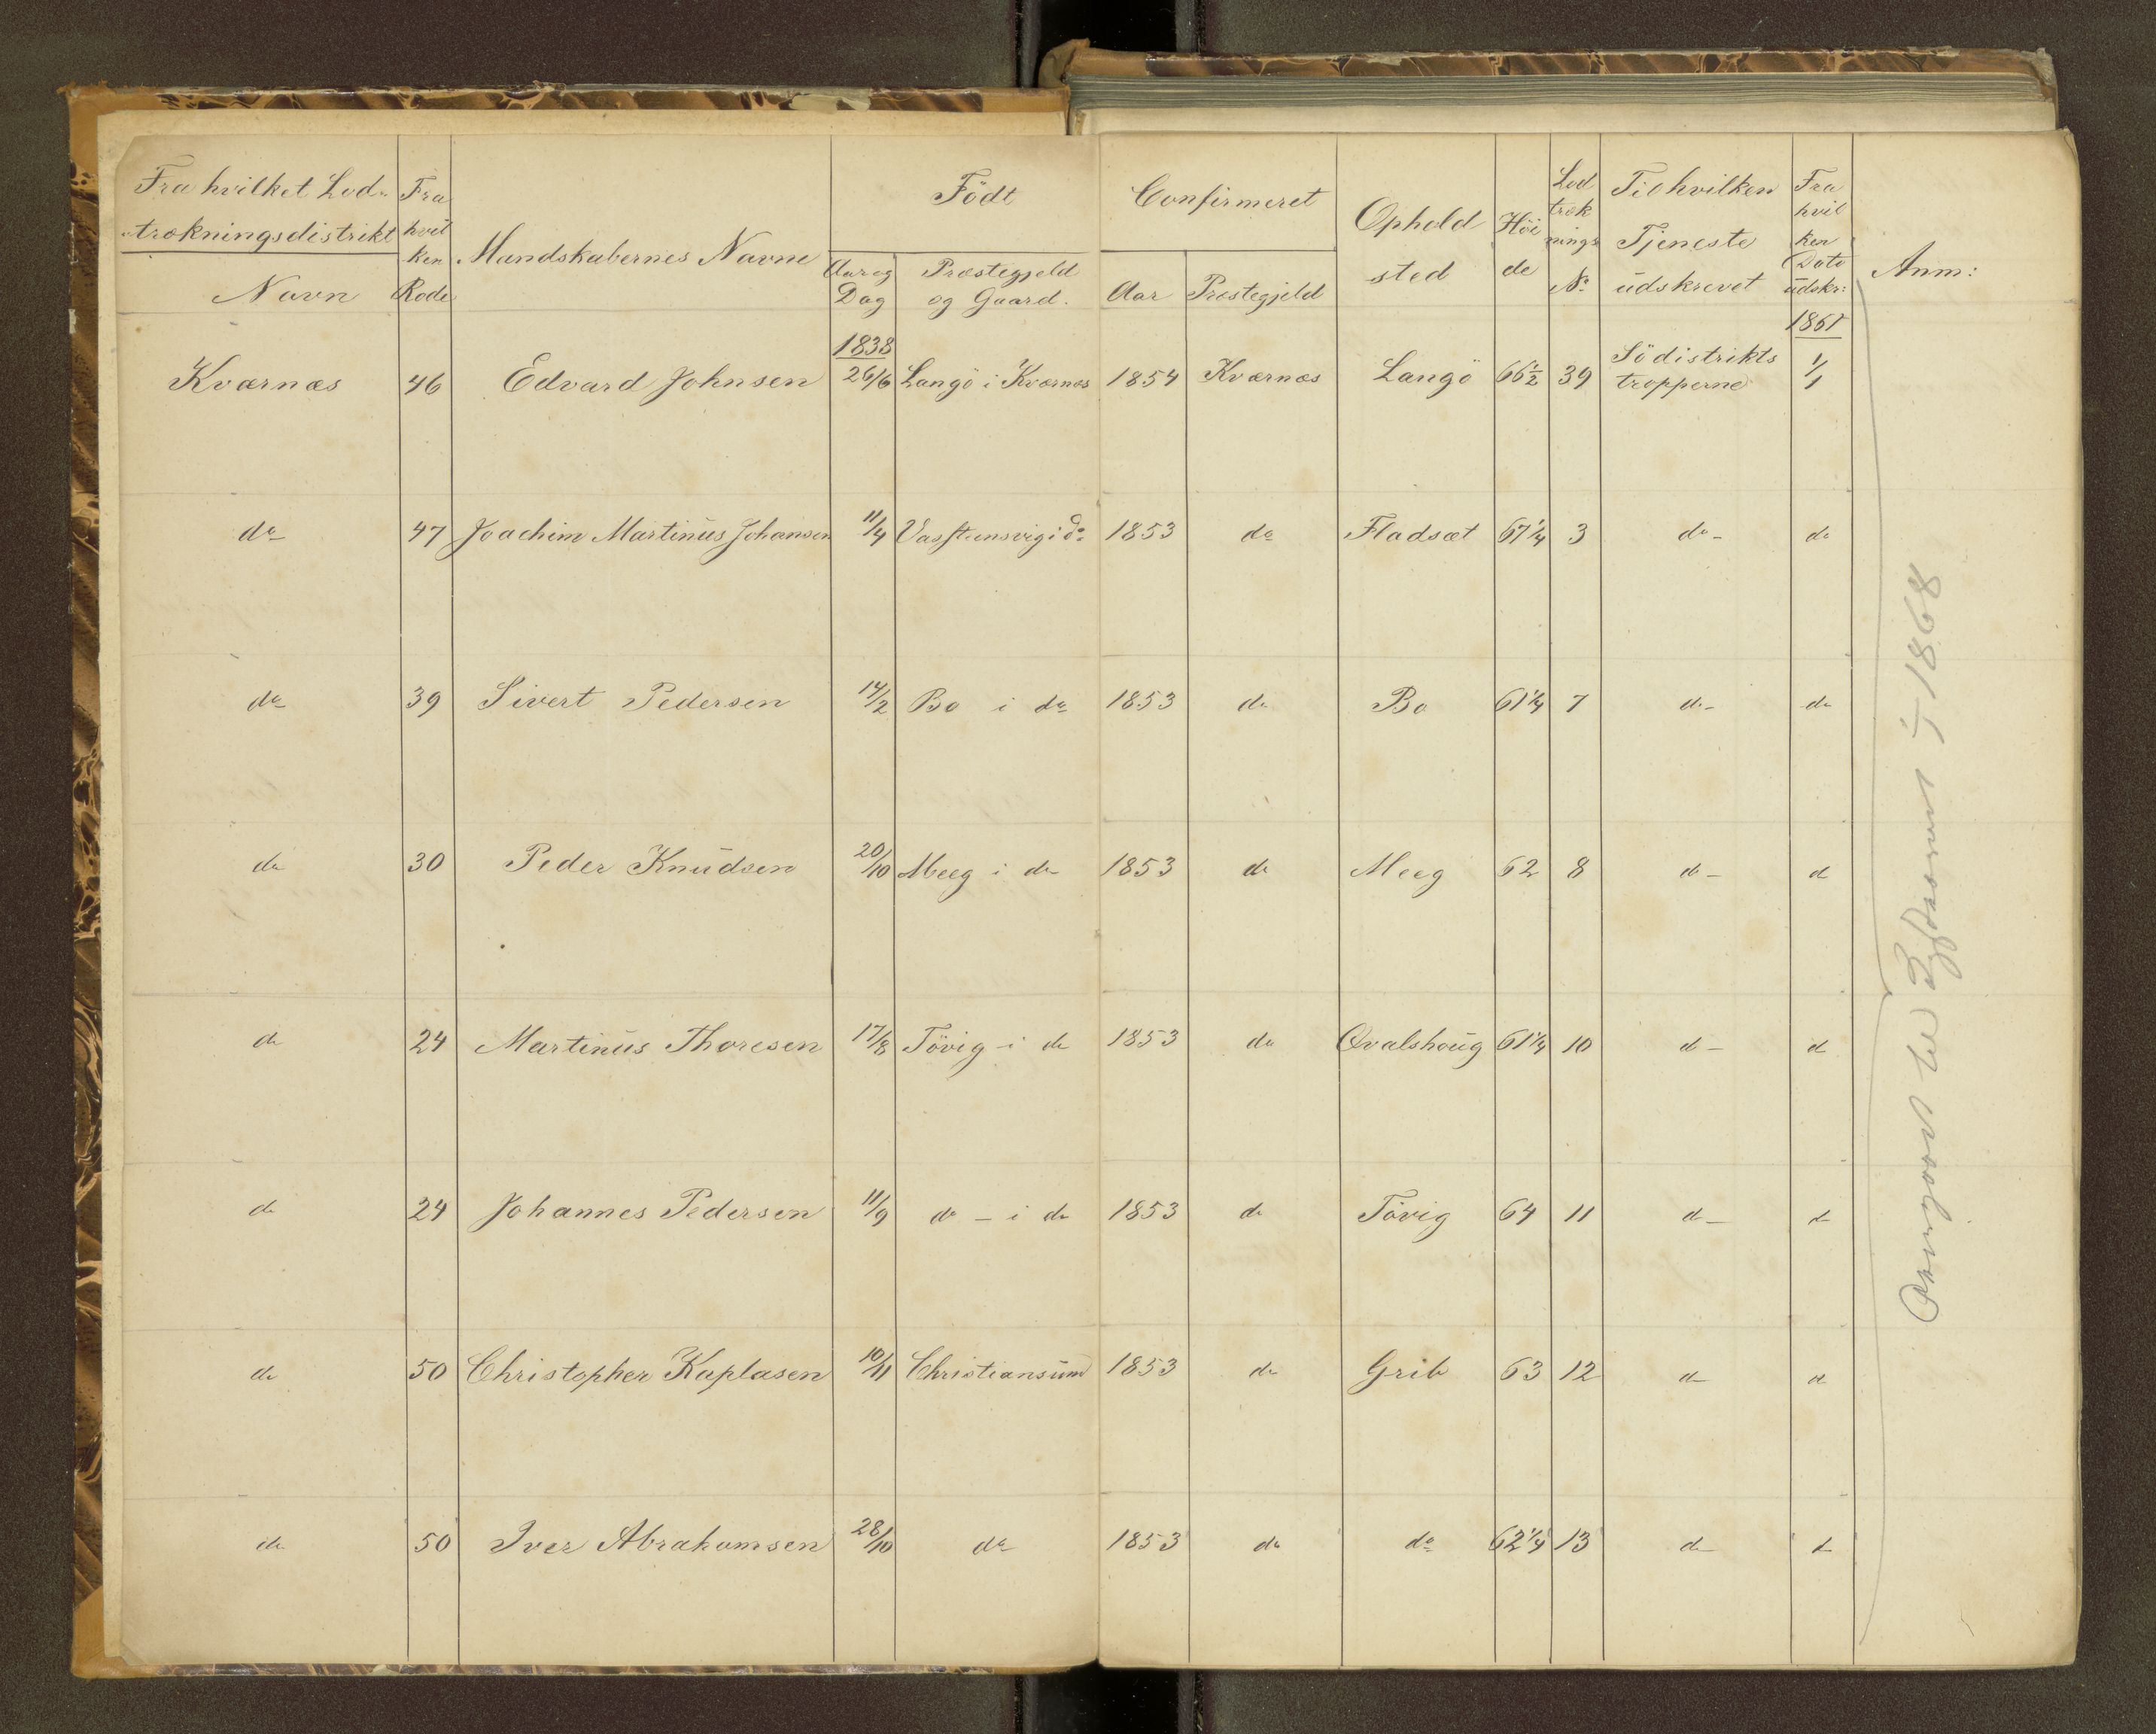 Fra hvilket Lod-
trækningsdistrikt
Navn
Fra
hvil
ken
Rode
Mandskabernes Navne
Födt
Aar og
Dag
Præstegjeld
og Gaard.
Confirmeret
Aar
Præstegjeld
Ophold
sted
Höi
de
Lod
træk
nings
No
Til hvilken
Tjeneste
udskrevet
Fra
hvil
ken
Dato
udskr:
Anm:
1838
1861
Kværnæs 46 Edvard Johnsen 26/6 Langö i Kværnæs 1854 Kværnæs Langö 66 1/2 39 Södistrikts
tropperne 1/1
do 47 Joachim Martinus Johansen 11/4 i do 1853 do Fladsæt 67 1/4 3 do - do
do 39 Sivert Pedersen 14/2 Bo i do 1853 do Bo 61 1/4 7 do - do
do 30 Peder Knudsen 20/10 Meeg i do 1853 do Meeg 62 8 do - do
do 24 Martinus Thoresen 17/8 Tövig - i do 1853 do Qvalshoug 61 1/4 10 do - do
do 24 Johannes Pedersen 11/9 do - i do 1853 do Tövig 64 11 do - do
do 50 Christopher Kaplasen 10/11 Christiansund 1853 do Grib 63 12 do do
do 50 Iver Abrahamsen 28/10 do 1853 do do 62 1/4 13 do do
Overgaaet til 1/1 1868